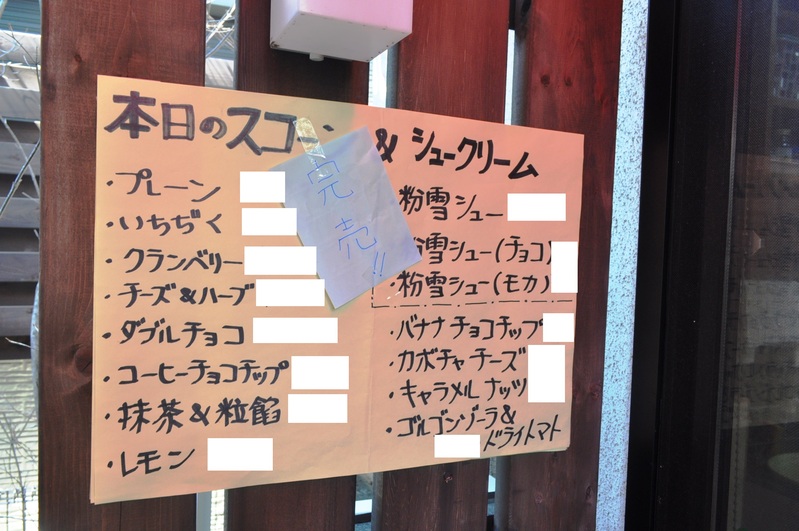 本日のスコーン & シュークリーム
完売!!
・プレーン
・いちぢく
・クランベリー
・チーズ&ハーブ
・ダブルチョコ
・コーヒーチョコチップ
・抹茶&粒餡
・レモン
・粉雪シュー
・粉雪シュー(チョコ)
・粉雪シュー(モカ)
・バナナチョコチップ
・カボチャチーズ
・キャラメルナッツ
・ゴルゴンゾーラ&
ドライトマト